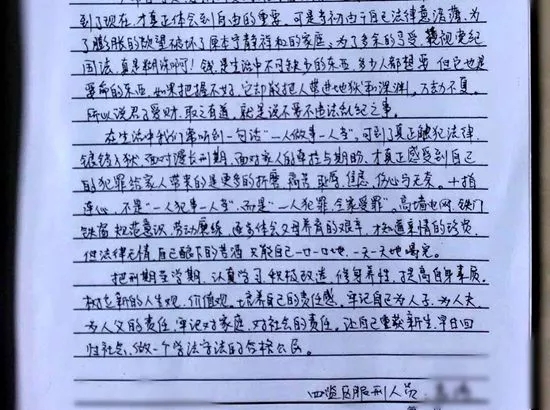 到了现在,才真正体会到自由的重要。可是当初由于自己法律意识薄,为
了膨胀的欲望破坏了原本宁静祥和的家庭,为了多余的享受,藐视党纪
国法,真是糊涂啊!钱是生活中不可缺少的东西,多少人都想要,但它也是
要命的东西,如果把握不好,它却能把人带进地狱和深渊,万劫不复。
所以说君子爱财,取之有道,就是说不要干违法乱纪之事。
在生活中我们常听到一句话"一人做事一人当",可到了真正触犯法律,
锒铛入狱,面对漫长刑期,面对家人的牵挂与期盼,才真正感受到自己
的犯罪给家人带来的是更多的折磨、痛苦、耻辱、焦虑、伤心与无奈。十指
连心,不是"一人犯事一人当",而是"一人犯罪,全家受罪"。高墙电网,铁门
铁窗,规范意识,劳动磨练,逐步体会父母养育的艰辛,才知道亲情的珍贵,
但法律无情,自己酿下的苦酒,只能自己一口一口地、一天一天地喝完。
把刑期当学期,认真学习,积极改造,修身养性,提高自身素质,
树立新的人生观、价值观,培养自己的责任感,牢记自己为人子、为人夫、
为人父的责任,牢记对家庭、对社会的责任。让自己重获新生,早日回
归社会,做一个学法守法的合格公民。
四监区服刑人员